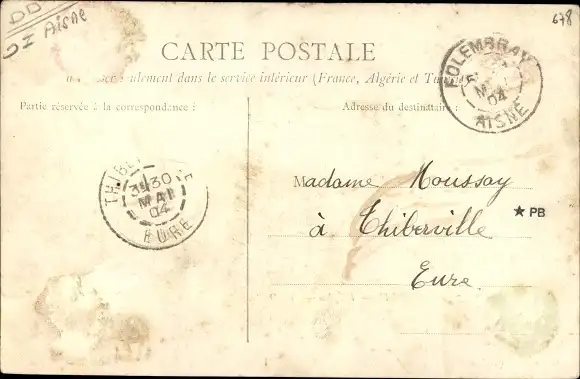 DD
Aisne
678
CARTE POSTALE
seulement dans le service intérieur (France, Algérie et
Partie réservée à la correspondance :
Adresse du destinataire :
FOLEMBRAY
04
AISNE
3E 30
MAI
04
EURE
Madame Moussay
à Thiberville
Eure.
★ PB